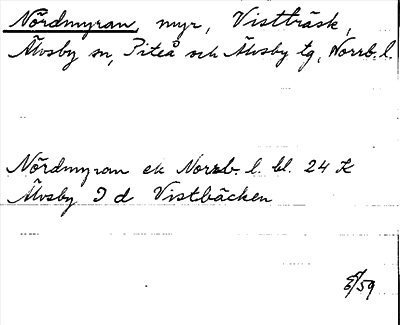 Nördmyran, myr, Vistträsk,
Älvsby sn, Piteå och Älvsby tg, Norrb. l.
Nördmyran ek Norrb. l. bl. 24 K
Älvsby I d Vistbäcken
/59